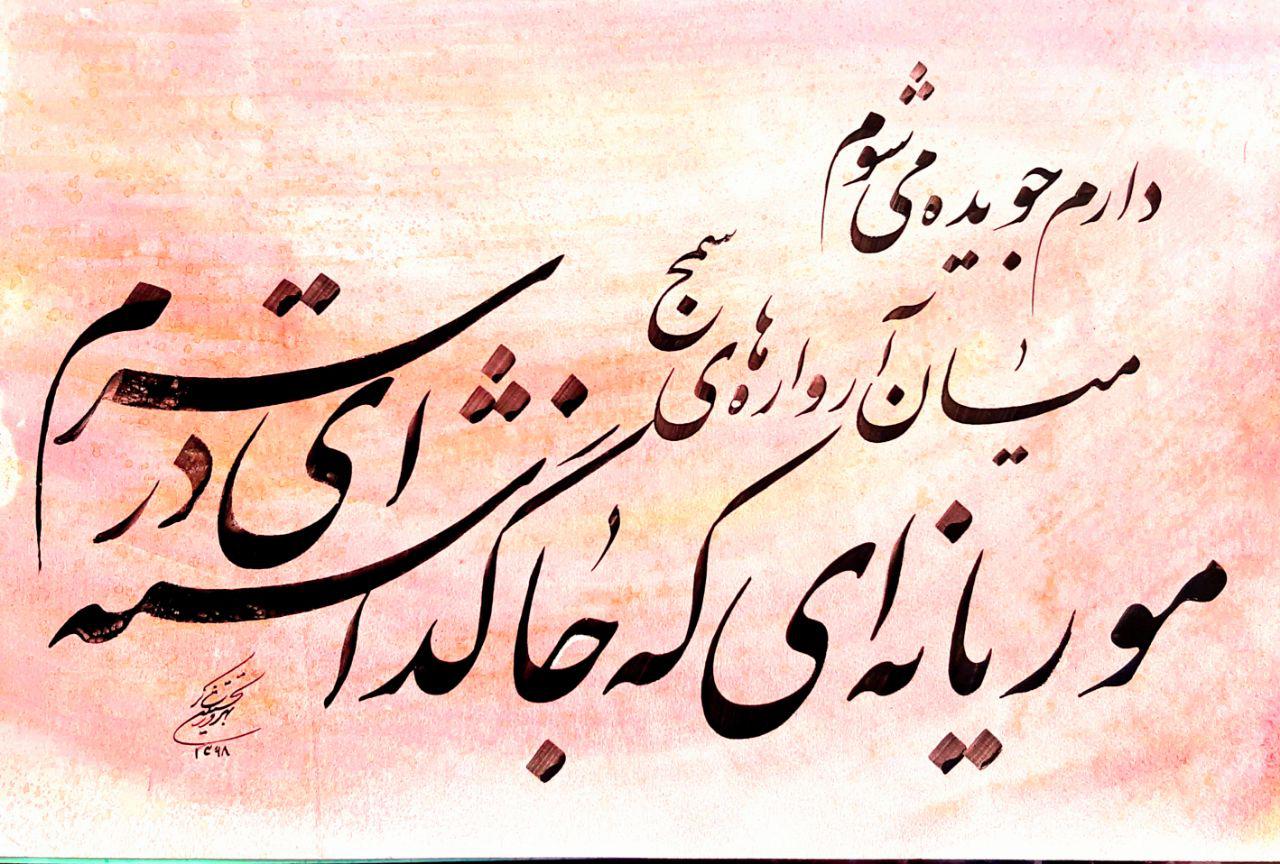 دارم جویده می شوم
میان آرواره های سمج
موریانه ای که جا گذاشته ای در سرم
۱۳۹۸